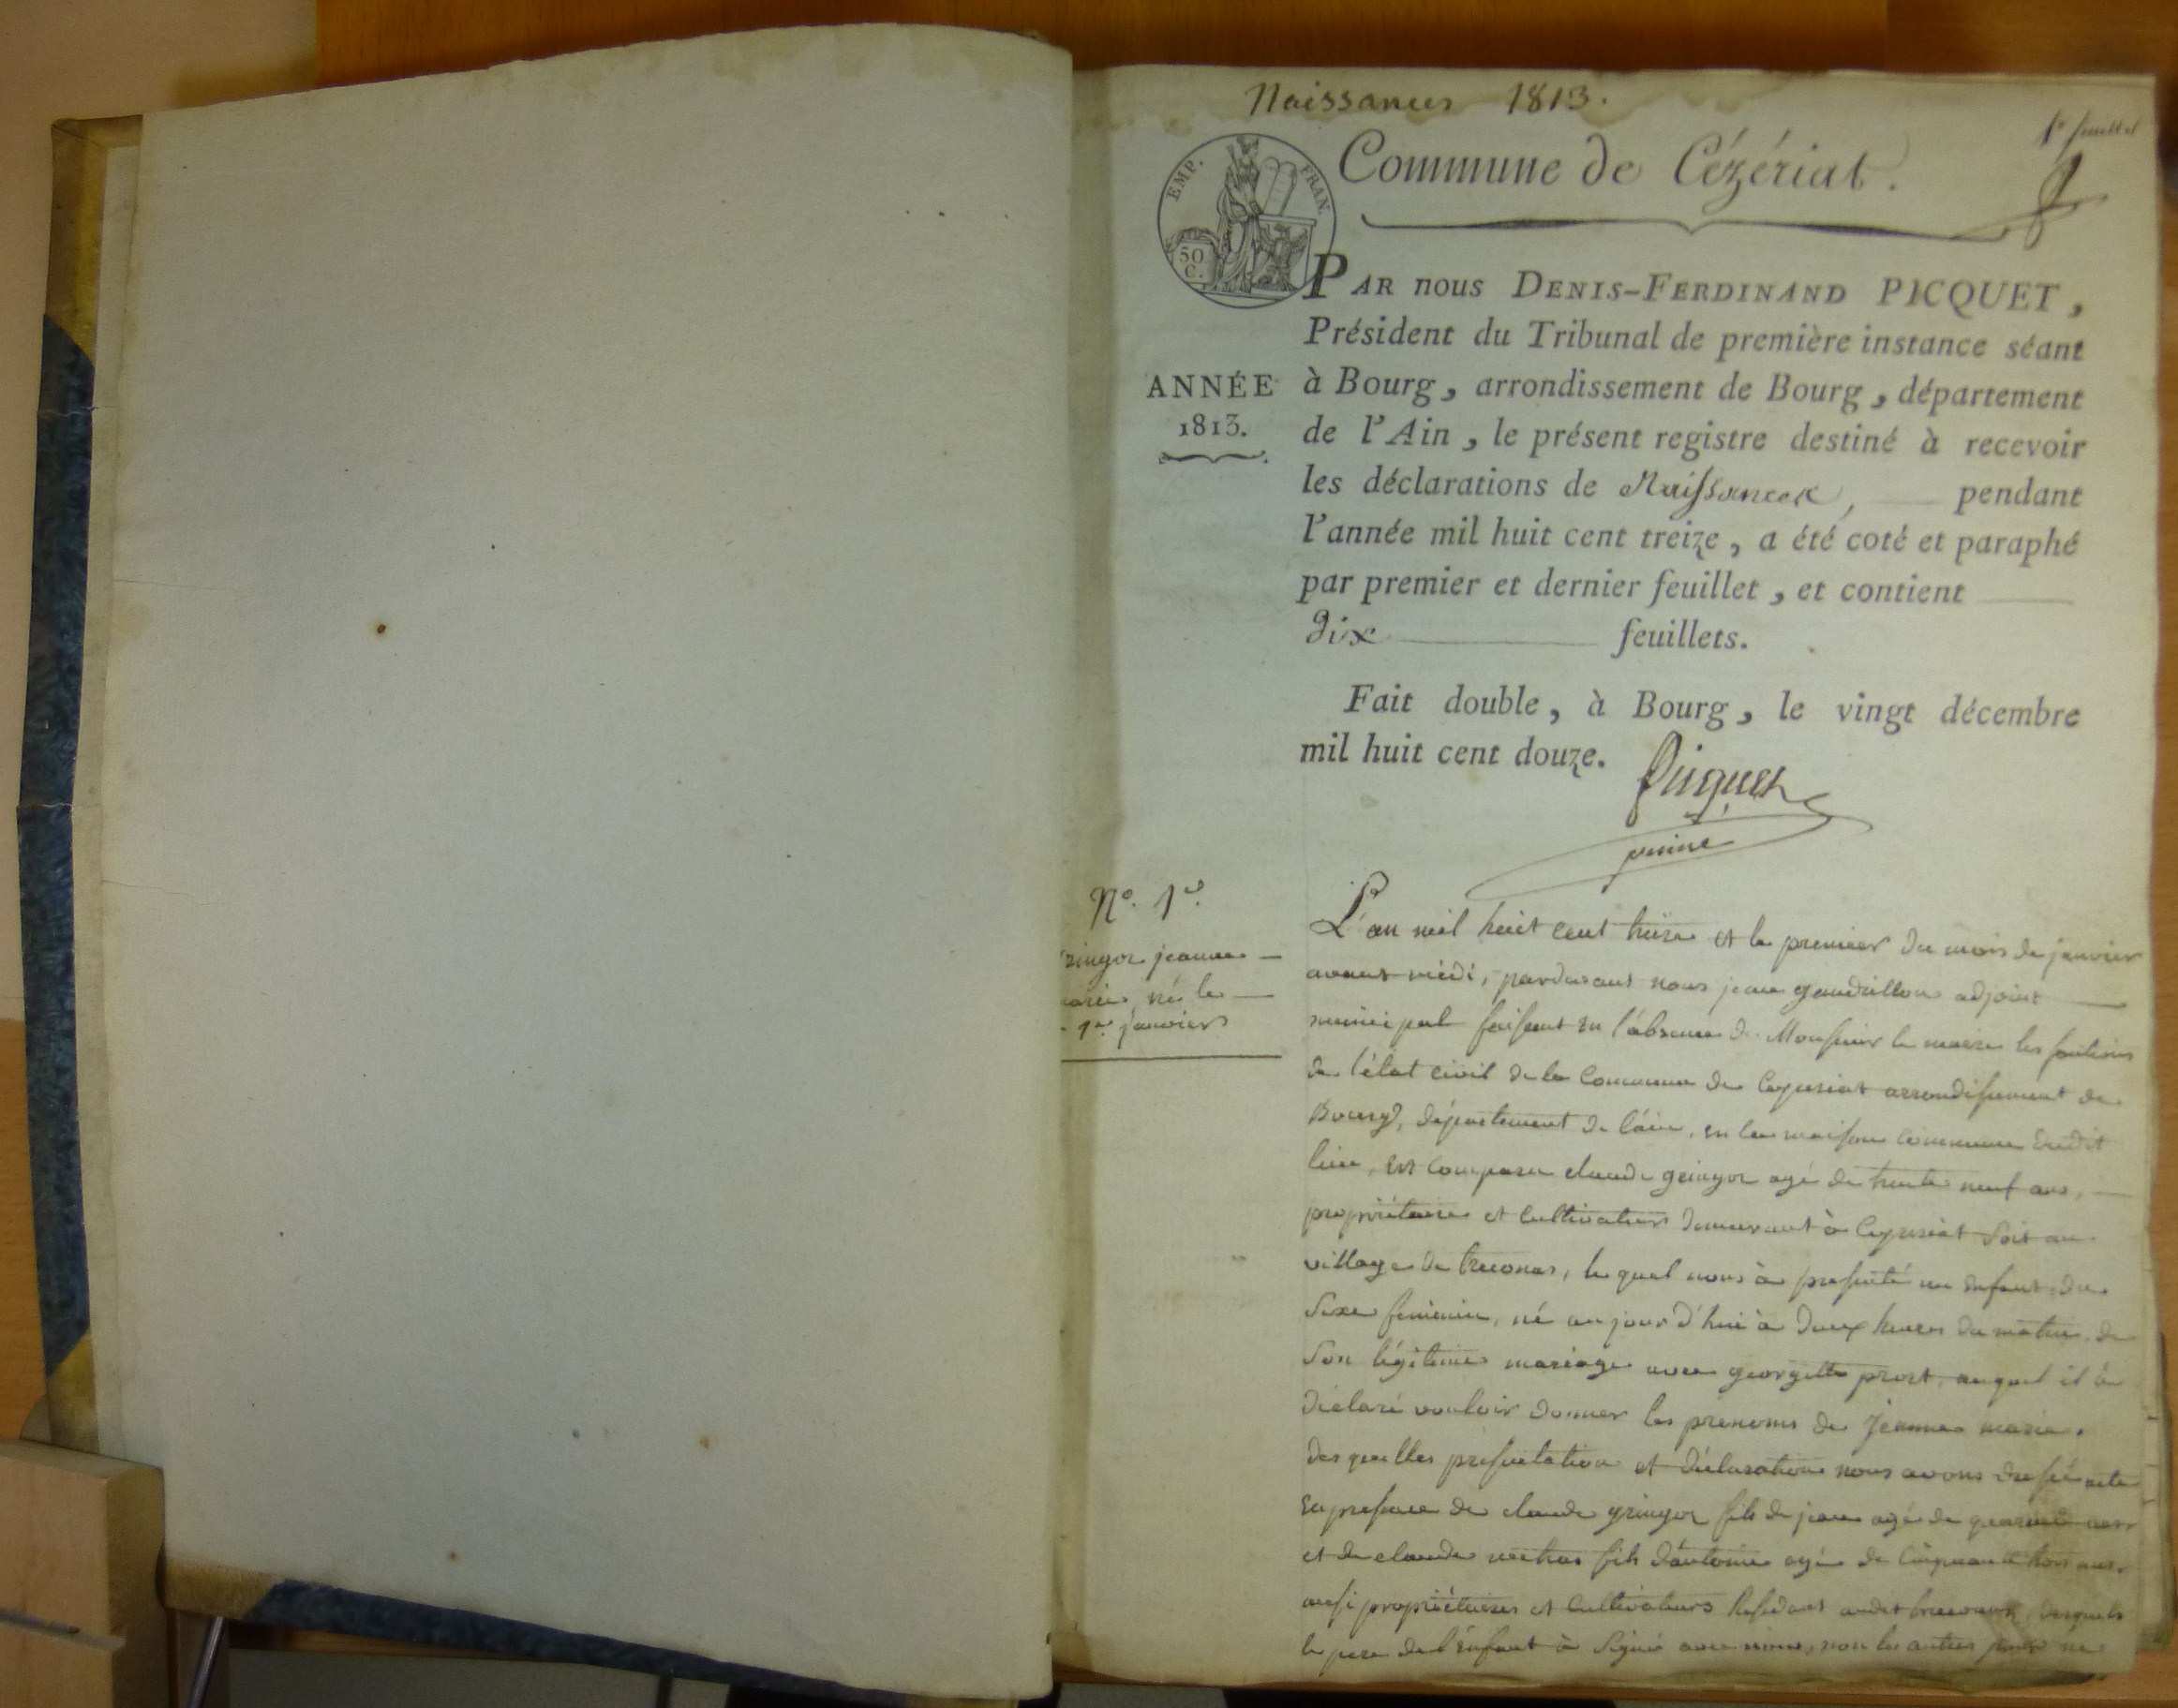 Naissances 1813.
1er feuillet
Commune de Cézériat.
EMP. FRAN.
50
C.
PAR nous DENIS-FERDINAND PICQUET,
Président du Tribunal de première instance séant
ANNÉE
1813.
à Bourg, arrondissement de Bourg, département
de l'Ain, le présent registre destiné à recevoir
les déclarations de Naissances, pendant
l'année mil huit cent treize, a été coté et paraphé
par premier et dernier feuillet, et contient
dix feuillets.
Fait double, à Bourg, le vingt décembre
mil huit cent douze.
Picquet
No. 1er
jeanne
marie, né le
1er janvier
L'an mil huit cent treize et le premier du mois de janvier
avant midi, pardevant nous jean gaudillon adjoint
municipal faisant en l'absence de Monsieur le maire les fontions
de l'état civil de la Commune de Ceyzeriat arrondissement de
Bourg, département de l'ain, en la maison commune dudit
lieu, est comparu claude gringoz agé de trente neuf ans,
propriétaire et Cultivateur demeurant à Ceyzeriat soit au
village de treconas, le quel nous à presenté un enfant du
sexe feminin, né au jour d'hui à deux heures du matin, de
son légitime mariage avec georgette prost, auquel il à
déclaré vouloir donner les prénoms de Jeanne marie.
des quelles présentation et déclaration nous avons dressé acte
en presence de claude gringoz fils de jean agé de quarante ans
et de claude fils d'antoine agé de Cinquante trois ans
aussi propriétaires et Cultivateurs Residant audit treconas, desquels
le pere de l'enfant à signé avec nous, non les autres pour ne